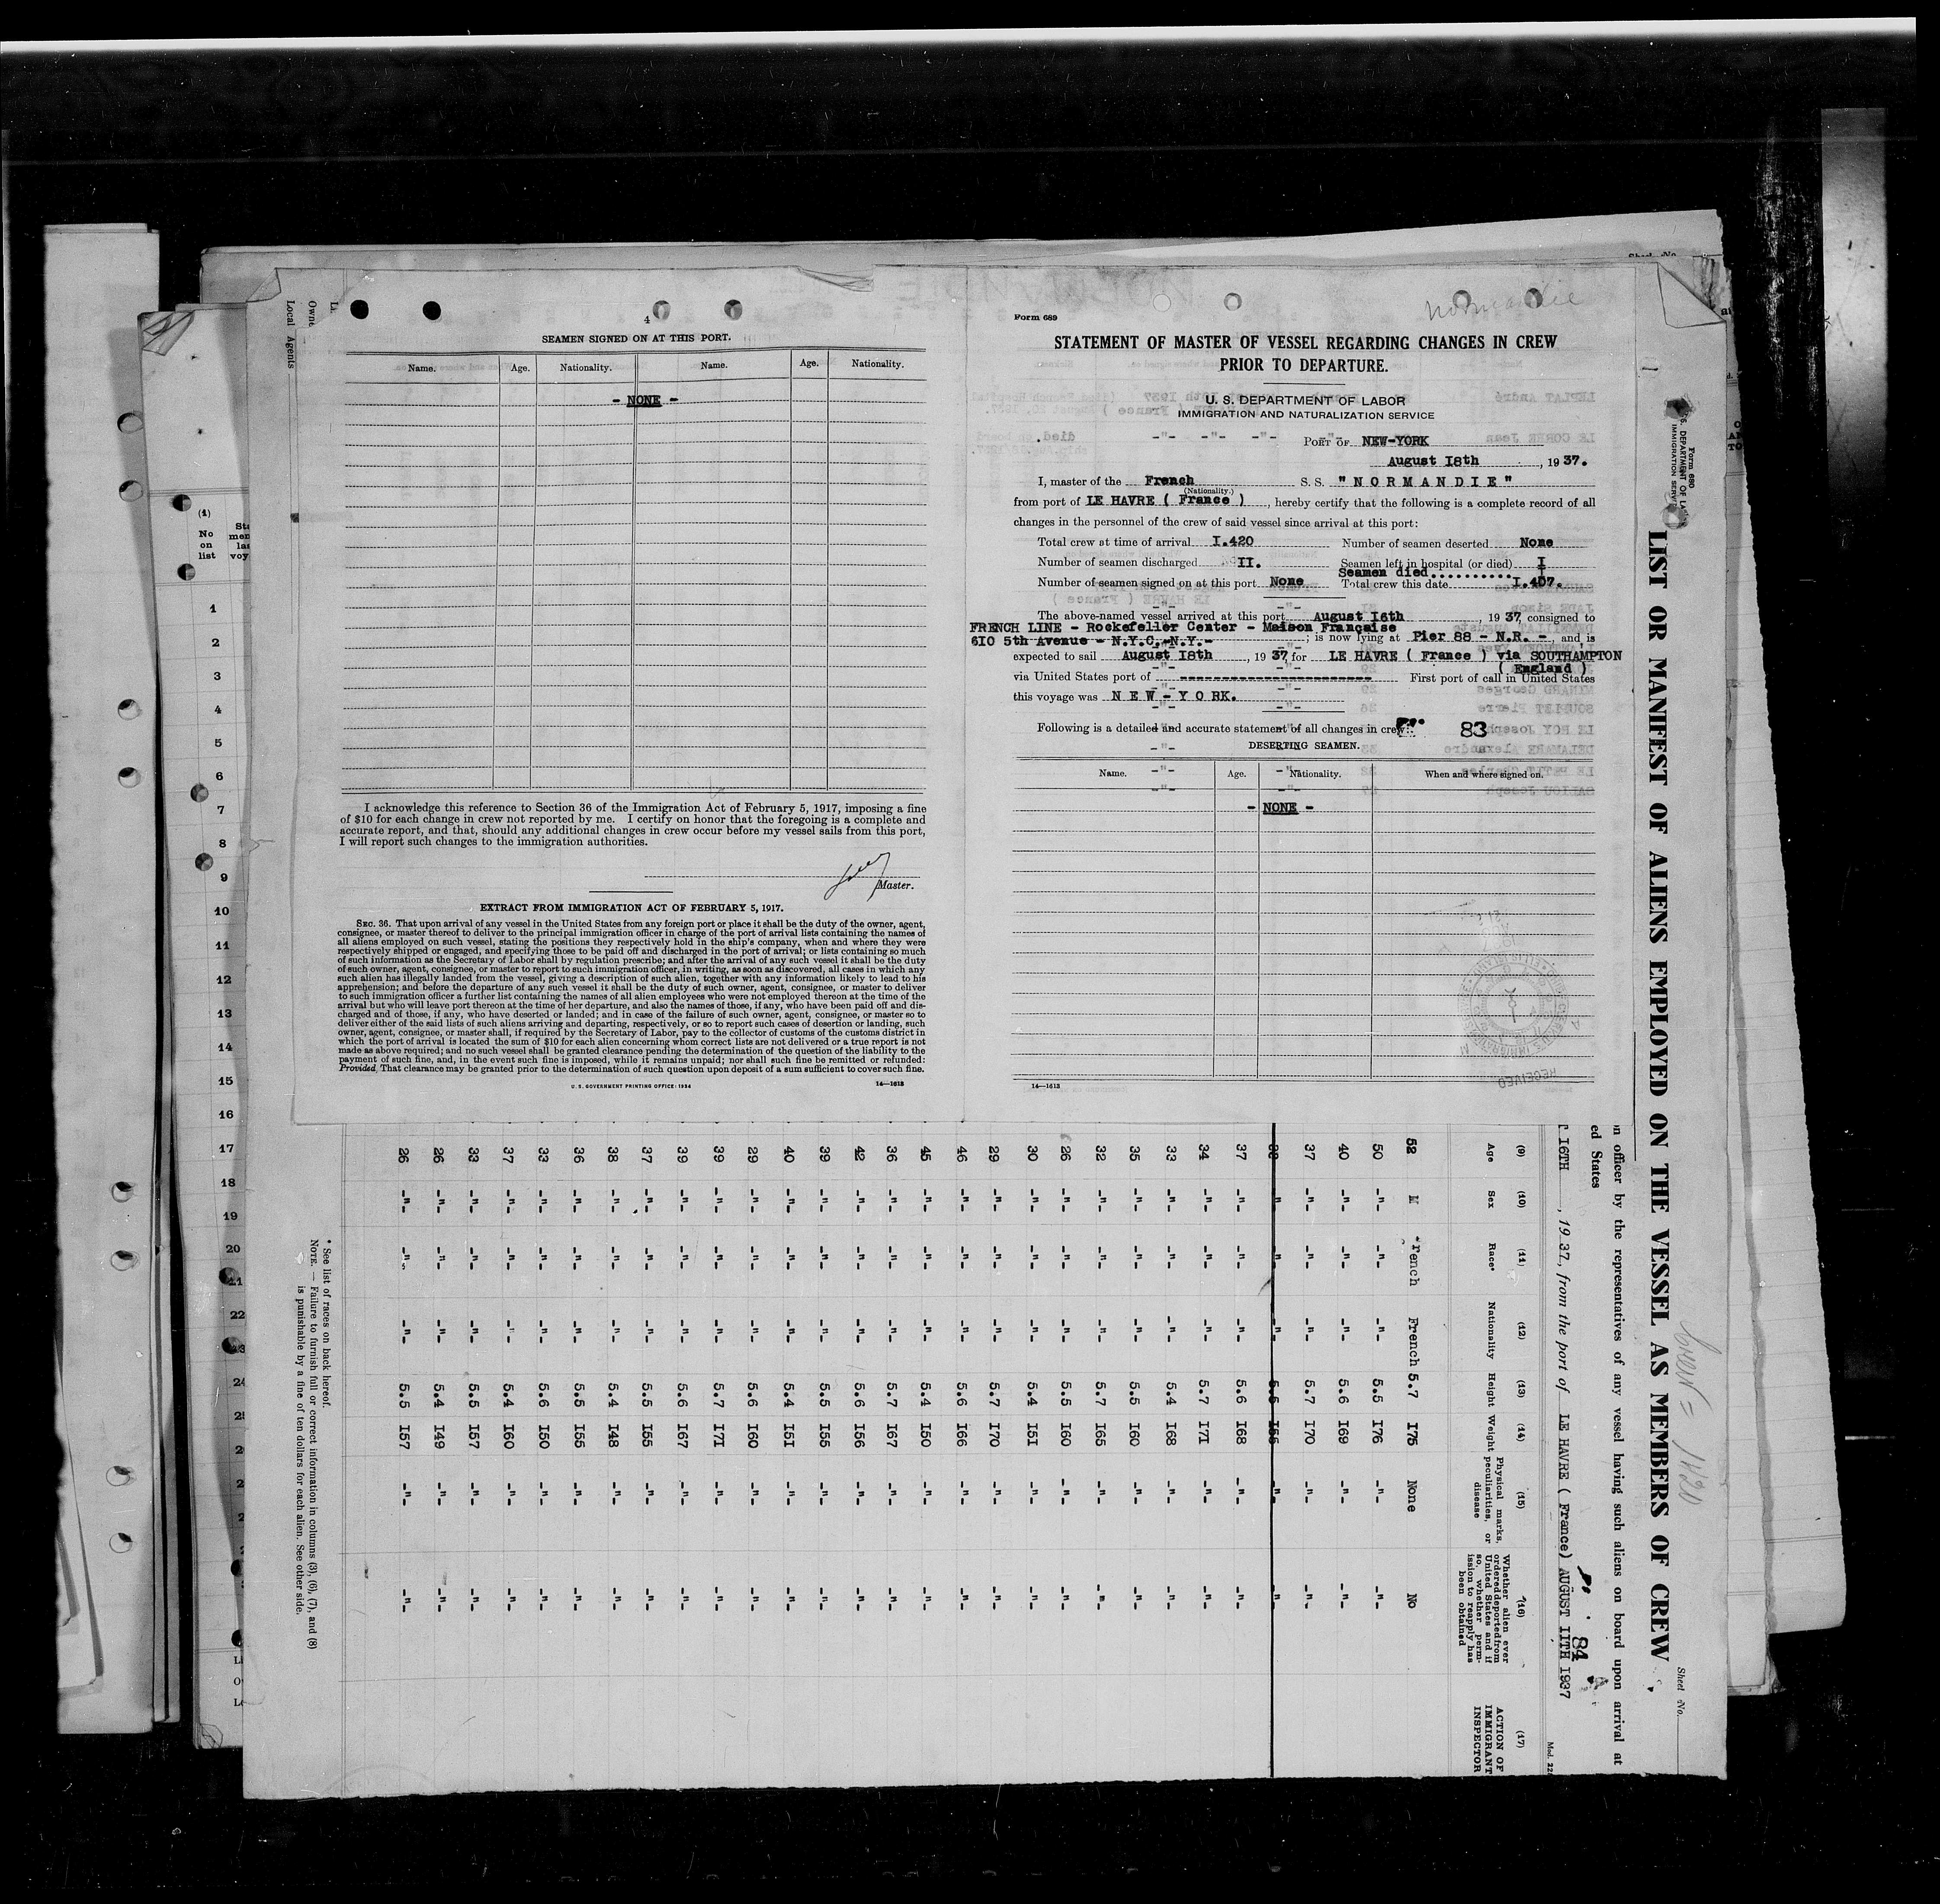 4
SEAMEN SIGNED ON AT THIS PORT.
Name. Age. Nationality. Name. Age. Nationality.
- NONE -
I acknowledge this reference to Section 36 of the Immigration Act of February 5, 1917, imposing a fine
of $10 for each change in crew not reported by me. I certify on honor that the foregoing is a complete and
accurate report, and that, should any additional changes in crew occur before my vessel sails from this port,
I will report such changes to the immigration authorities.
Master.
EXTRACT FROM IMMIGRATION ACT OF FEBRUARY 5, 1917.
SEC. 36. That upon arrival of any vessel in the United States from any foreign port or place it shall be the duty of the owner, agent,
consignee, or master thereof to deliver to the principal immigration officer in charge of the port of arrival lists containing the names of
all aliens employed on such vessel, stating the positions they respectively hold in the ship's company, when and where they were
respectively shipped or engaged, and specifying those to be paid off and discharged in the port of arrival; or lists containing so much
of such information as the Secretary of Labor shall by regulation prescribe; and after the arrival of any such vessel it shall be the duty
of such owner, agent, consignee, or master to report to such immigration officer, in writing, as soon as discovered, all cases in which any
such alien has illegally landed from the vessel, giving a description of such alien, together with any information likely to lead to his
apprehension; and before the departure of any such vessel it shall be the duty of such owner, agent, consignee, or master to deliver
to such immigration officer a further list containing the names of all alien employees who were not employed thereon at the time of the
arrival but who will leave port thereon at the time of her departure, and also the names of those, if any, who have been paid off and dis-
charged and of those, if any, who have deserted or landed; and in case of the failure of such owner, agent, consignee, or master so to
deliver either of the said lists of such aliens arriving and departing, respectively, or so to report such cases of desertion or landing, such
owner, agent, consignee, or master shall, if required by the Secretary of Labor, pay to the collector of customs of the customs district in
which the port of arrival is located the sum of $10 for each alien concerning whom correct lists are not delivered or a true report is not
made as above required; and no such vessel shall be granted clearance pending the determination of the question of the liability to the
payment of such fine, and, in the event such fine is imposed, while it remains unpaid; nor shall such fine be remitted or refunded:
Provided, That clearance may be granted prior to the determination of such question upon deposit of a sum sufficient to cover such fine.
U. S. GOVERNMENT PRINTING OFFICE: 1934 14—1613
Form 689
Normandie
STATEMENT OF MASTER OF VESSEL REGARDING CHANGES IN CREW
PRIOR TO DEPARTURE.
U. S. DEPARTMENT OF LABOR
IMMIGRATION AND NATURALIZATION SERVICE
PORT OF NEW-YORK
August I8th, 1937.
I, master of the French S. S. "NORMANDIE"
(Nationality.)
from port of LE HAVRE ( France ), hereby certify that the following is a complete record of all
changes in the personnel of the crew of said vessel since arrival at this port:
Total crew at time of arrival I.420 Number of seamen deserted None
Number of seamen discharged II. Seamen left in hospital (or died) I
Seamen died.......... I
Number of seamen signed on at this port None Total crew this date I.407.
The above-named vessel arrived at this port August I6th, 1937, consigned to
FRENCH LINE - Rockefeller Center - Maison Française
6I0 5th Avenue - N.Y.C.-N.Y.-; is now lying at Pier 88 - N.R. -, and is
expected to sail August I8th, 1937, for LE HAVRE ( France ) via SOUTHAMPTON
( England )
via United States port of ---------------------- First port of call in United States
this voyage was NEW-YORK.
Following is a detailed and accurate statement of all changes in crew: 83
DESERTING SEAMEN.
Name. Age. Nationality. When and where signed on.
- NONE -
14—1613
RECEIVED
Form 680
LIST OR MANIFEST OF ALIENS EMPLOYED ON THE VESSEL AS MEMBERS OF CREW
Sheet No.
Crew = 1420
officer by the representatives of any vessel having such aliens on board upon arrival at
ed States
I6TH, 1937, from the port of LE HAVRE ( France) AUGUST IITH I937
84
Mod. 22
(9) (10) (11) (12) (13) (14) (15) (16) (17)
Age Sex Race* Nationality Height Weight Physical marks, peculiarities, or disease Whether alien ever ordered deported from United States and if so, whether permission to reapply has been obtained ACTION OF IMMIGRANT INSPECTOR
52 M French French 5.7 I75 None No
50 -"- -"- -"- 5.5 I76 -"- -"-
40 -"- -"- -"- 5.6 I69 -"- -"-
37 -"- -"- -"- 5.7 I70 -"- -"-
37 -"- -"- -"- 5.6 I68 -"- -"-
34 -"- -"- -"- 5.7 I7I -"- -"-
33 -"- -"- -"- 5.4 I68 -"- -"-
35 -"- -"- -"- 5.5 I60 -"- -"-
32 -"- -"- -"- 5.7 I65 -"- -"-
26 -"- -"- -"- 5.5 I60 -"- -"-
30 -"- -"- -"- 5.4 I5I -"- -"-
29 -"- -"- -"- 5.7 I70 -"- -"-
46 -"- -"- -"- 5.6 I66 -"- -"-
45 -"- -"- -"- 5.4 I50 -"- -"-
36 -"- -"- -"- 5.7 I67 -"- -"-
42 -"- -"- -"- 5.6 I56 -"- -"-
39 -"- -"- -"- 5.5 I55 -"- -"-
40 -"- -"- -"- 5.4 I5I -"- -"-
29 -"- -"- -"- 5.6 I60 -"- -"-
39 -"- -"- -"- 5.7 I7I -"- -"-
39 -"- -"- -"- 5.6 I67 -"- -"-
37 -"- -"- -"- 5.5 I55 -"- -"-
38 -"- -"- -"- 5.4 I48 -"- -"-
36 -"- -"- -"- 5.5 I55 -"- -"-
33 -"- -"- -"- 5.6 I50 -"- -"-
37 -"- -"- -"- 5.4 I60 -"- -"-
33 -"- -"- -"- 5.5 I57 -"- -"-
26 -"- -"- -"- 5.4 I49 -"- -"-
26 -"- -"- -"- 5.5 I57 -"- -"-
* See list of races on back hereof.
NOTE. — Failure to furnish full or correct information in columns (3), (6), (7), and (8)
is punishable by a fine of ten dollars for each alien. See other side.
Local Agents
(1)
No
on
list
1
2
3
4
5
6
7
8
9
10
11
12
13
14
15
16
17
18
19
20
22